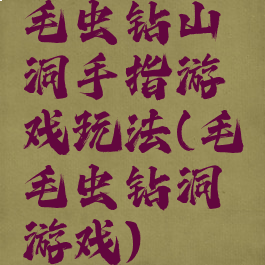 毛虫钻山
洞手指游
戏玩法(毛
毛虫钻洞
游戏)